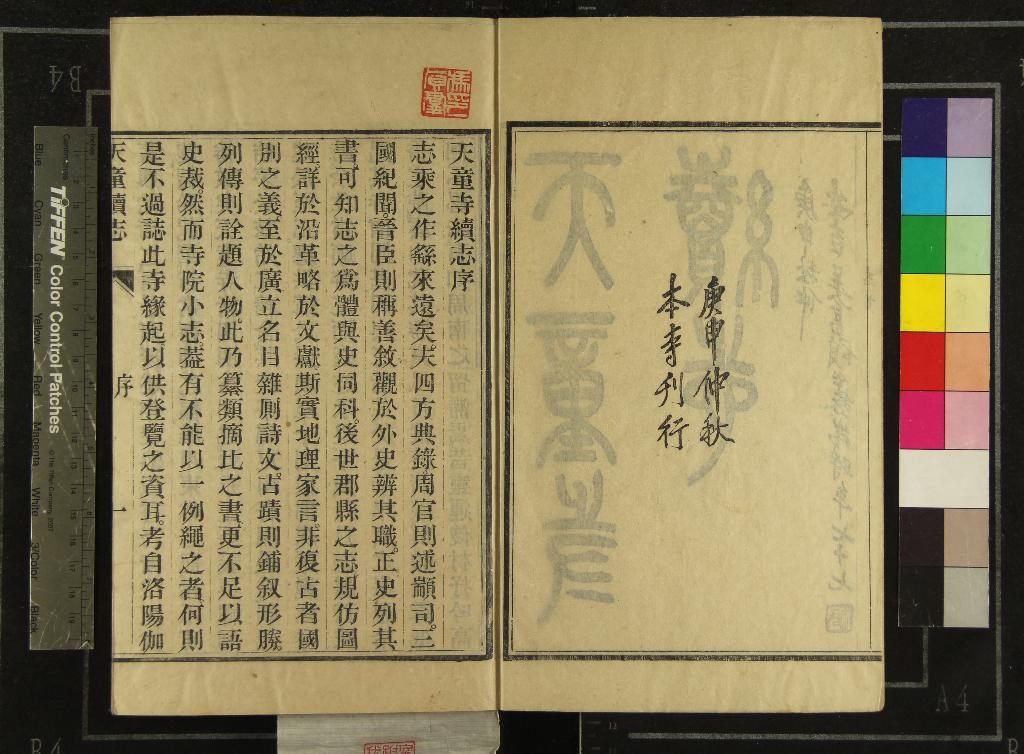 庚申仲秋
本寺刊行
天童寺續志序
志乘之作繇來遠矣夫四方典錄周官則述顓司三
國紀聞晉臣則稱善敘觀於外史辨其職正史列其
書可知志之爲體與史同科後世郡縣之志規仿圖
經詳於沿革略於文獻斯實地理家言非復古者國
別之義至於廣立名目雜厠詩文古蹟則鋪叙形勝
列傳則詮題人物此乃纂類摘比之書更不足以語
史裁然而寺院小志葢有不能以一例繩之者何則
是不過誌此寺緣起以供登覽之資耳考自洛陽伽
天童續志
序
一
TIFFEN Color Control Patches
© The Tiffen Company, 2007
Centimetres
Inches
Blue
Cyan
Green
Yellow
Red
Magenta
White
3/Color
Black
B4
A4